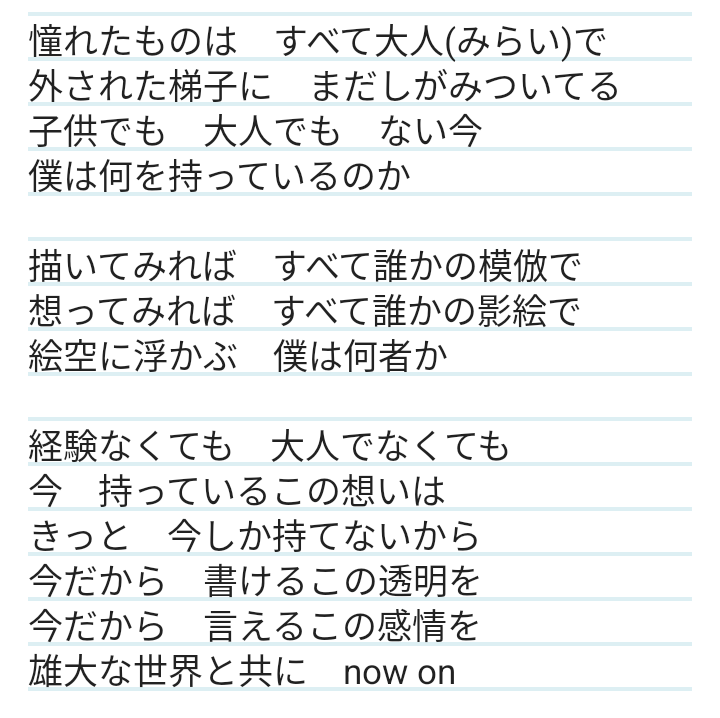 憧れたものは　すべて大人(みらい)で
外された梯子に　まだしがみついてる
子供でも　大人でも　ない今
僕は何を持っているのか
描いてみれば　すべて誰かの模倣で
想ってみれば　すべて誰かの影絵で
絵空に浮かぶ　僕は何者か
経験なくても　大人でなくても
今　持っているこの想いは
きっと　今しか持てないから
今だから　書けるこの透明を
今だから　言えるこの感情を
雄大な世界と共に　now on